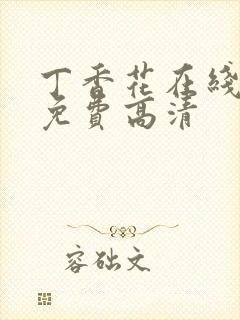 丁香花在綫
免費高清
容础文